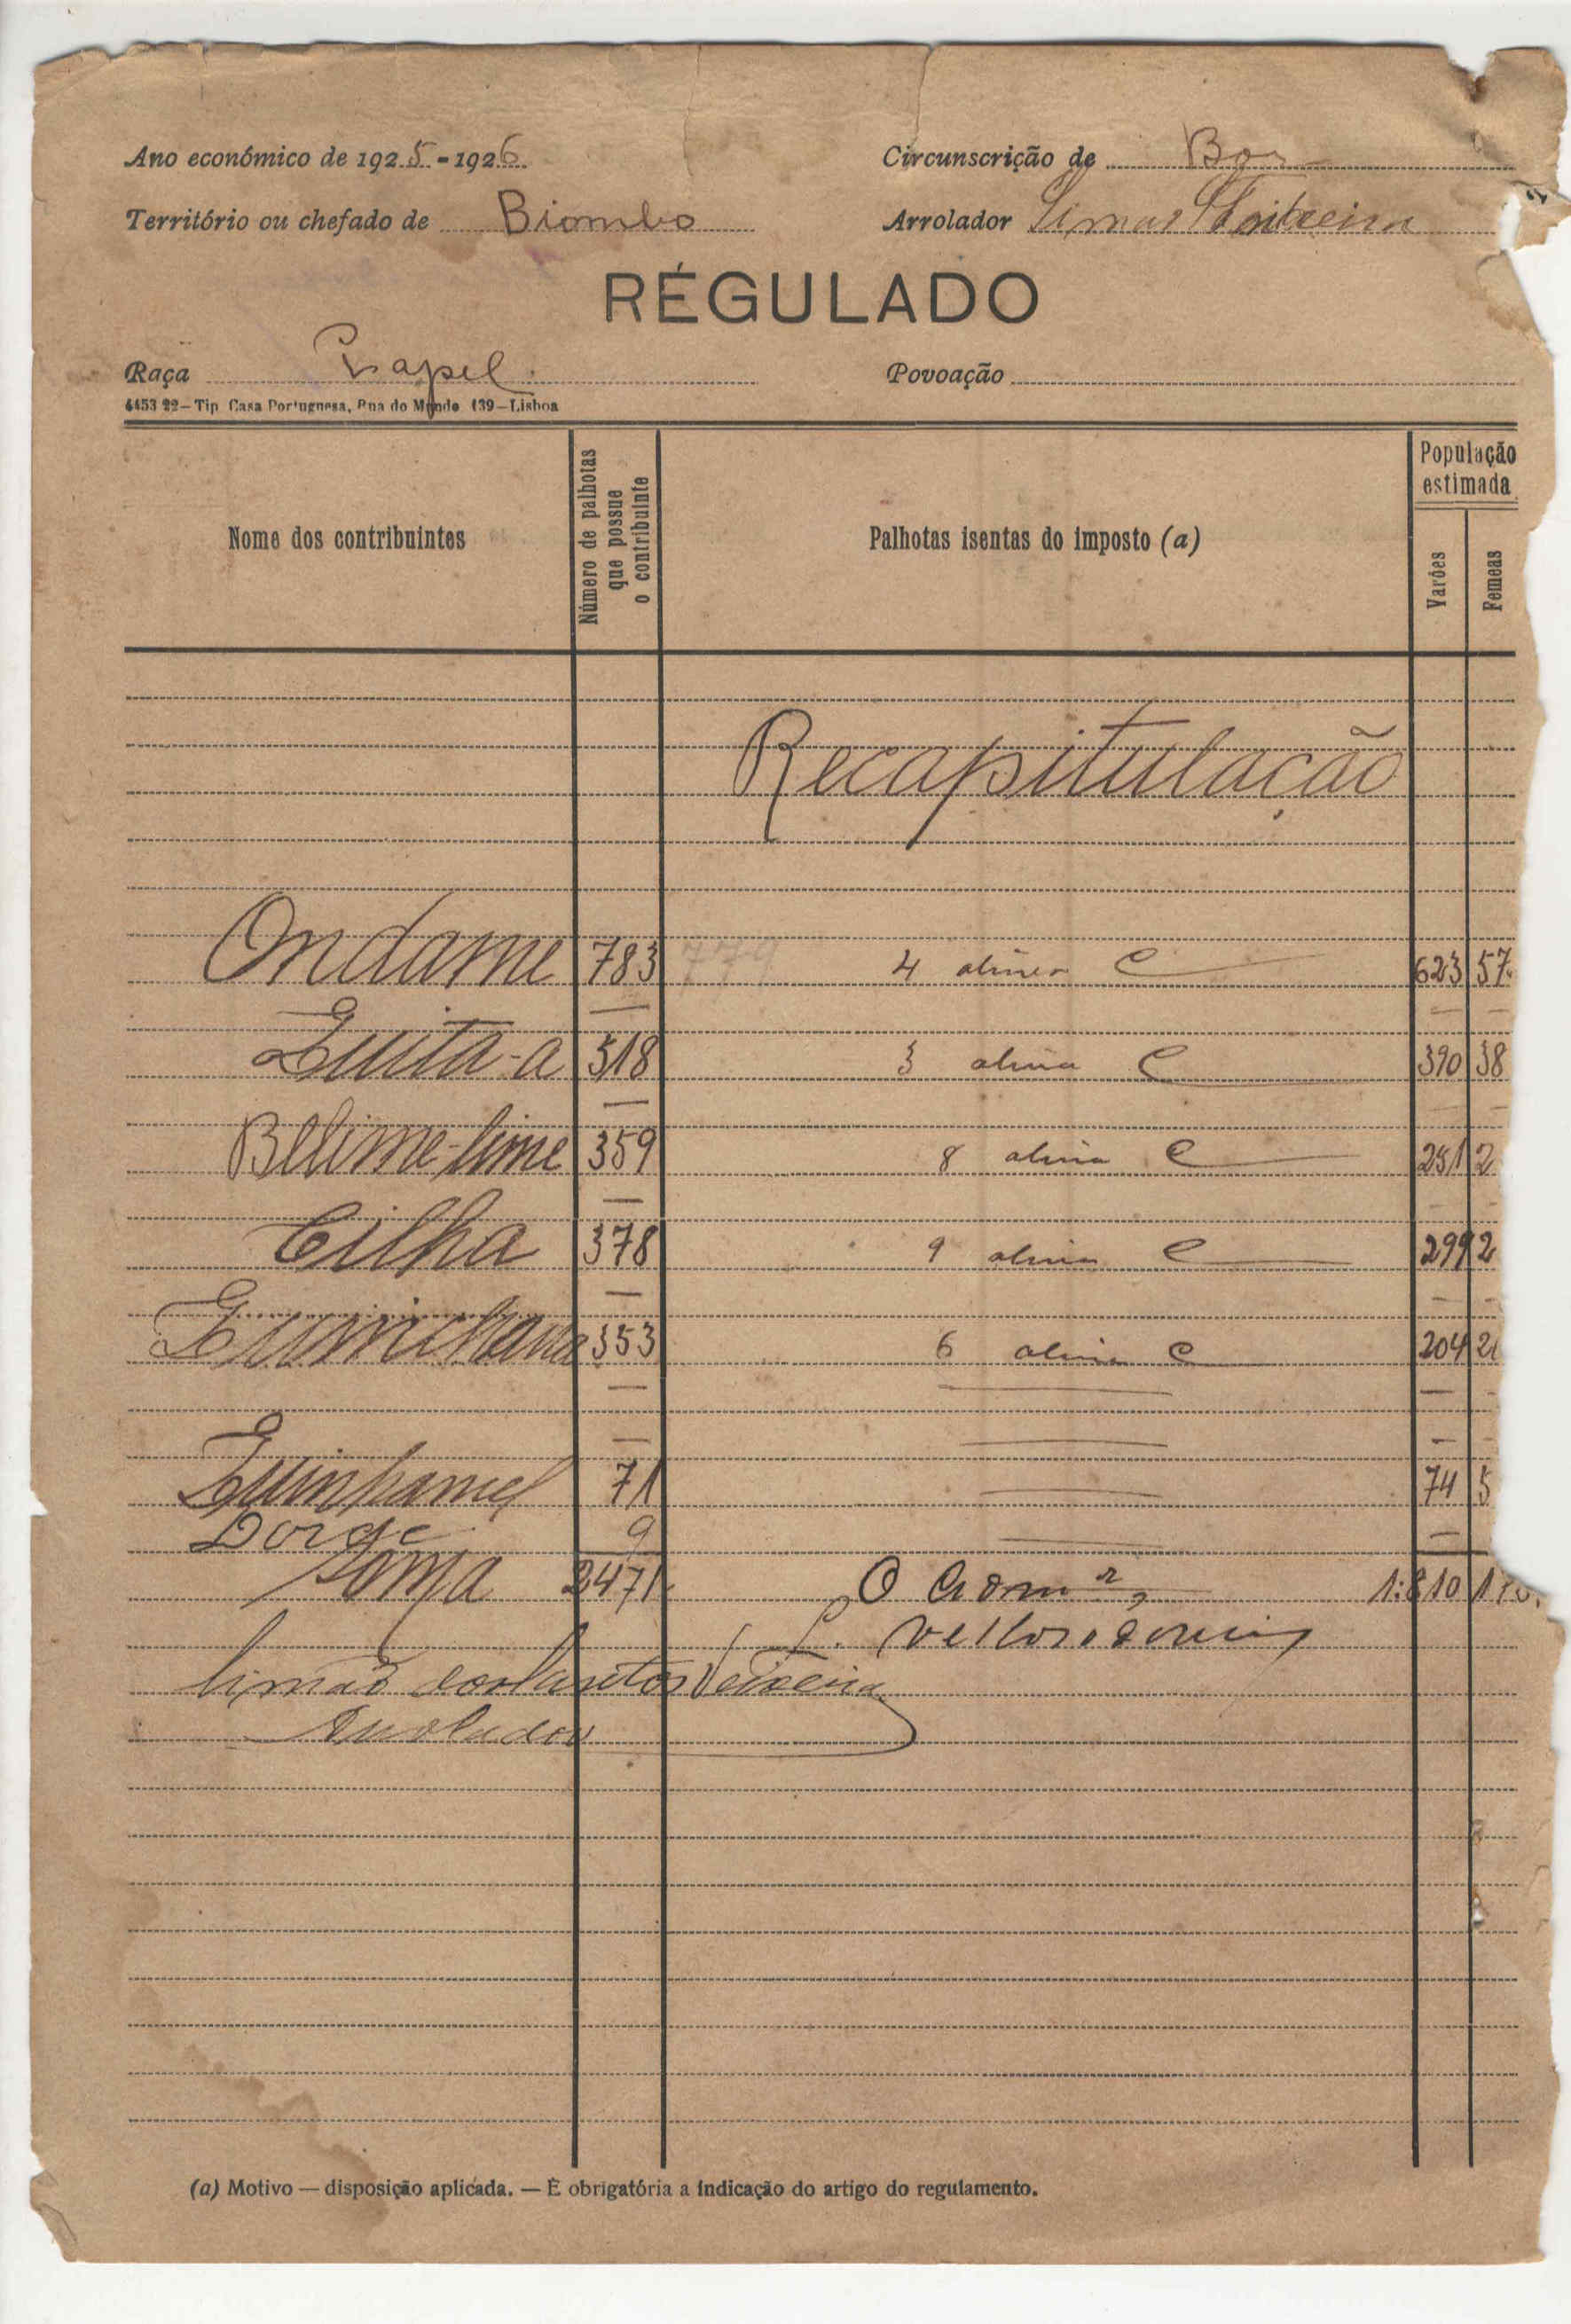 Ano económico de 1925-1926
Circunscrição de Bor
Território ou chefado de Biombo
Arrolador Simão Teixeira
RÉGULADO
Raça Papel
Povoação
4453 22—Tip. Casa Portuguesa, Rua do Mundo 139—Lisboa
Nome dos contribuintes
Número de palhotas que possue o contribuinte
Palhotas isentas do imposto (a)
População estimada
Varões
Femeas
Recapitulação
Ondame 783 779 4 alinea C 623 57
518 3 alinea C 390 38
Blime-lime 359 8 alinea C 251 2
Cilha 378 9 alinea C 299 2
353 6 alinea C 204 2
Quinhamel 71 74 5
Dorse 9
Soma 2471 O 1:810 1
Simão dos Santos Teixeira
Arrolador
(a) Motivo — disposição aplicada. — É obrigatória a indicação do artigo do regulamento.